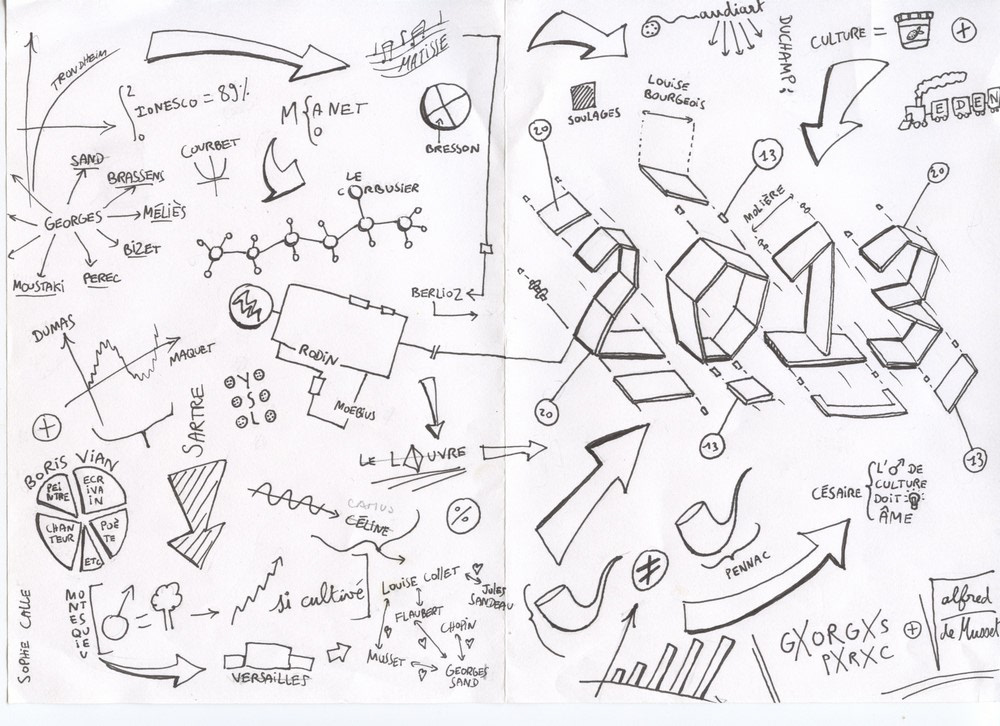 TRONDHEIM
2
∫ IONESCO = 89%
0
M{ANET
0
MATISSE
BRESSON
COURBET
LE
CORBUSIER
SAND
BRASSENS
GEORGES
MÉLIÈS
BIZET
PEREC
MOUSTAKI
BERLIOZ
DUMAS
MAQUET
RODIN
MOEBIUS
SARTRE
Y
S
L
LE LOUVRE
BORIS VIAN
PEINTRE
ECRIVAIN
CHANTEUR
POÈTE
ETC
CAMUS
CÉLINE
%
SOPHIE CALLE
MONTESQUIEU
=
si cultivé
VERSAILLES
LOUISE COLLET
JULES
SANDEAU
FLAUBERT
CHOPIN
MUSSET
GEORGES
SAND
audiart
DUCHAMP:
CULTURE =
+
EDEN
SOULAGES
LOUISE
BOURGEOIS
20
13
20
MOLIÈRE
∞
2013
20
13
13
CÉSAIRE
L'♂ DE
CULTURE
DOIT :
ÂME
PENNAC
≠
GXORGXS
PXRXC
+
alfred
de Musset